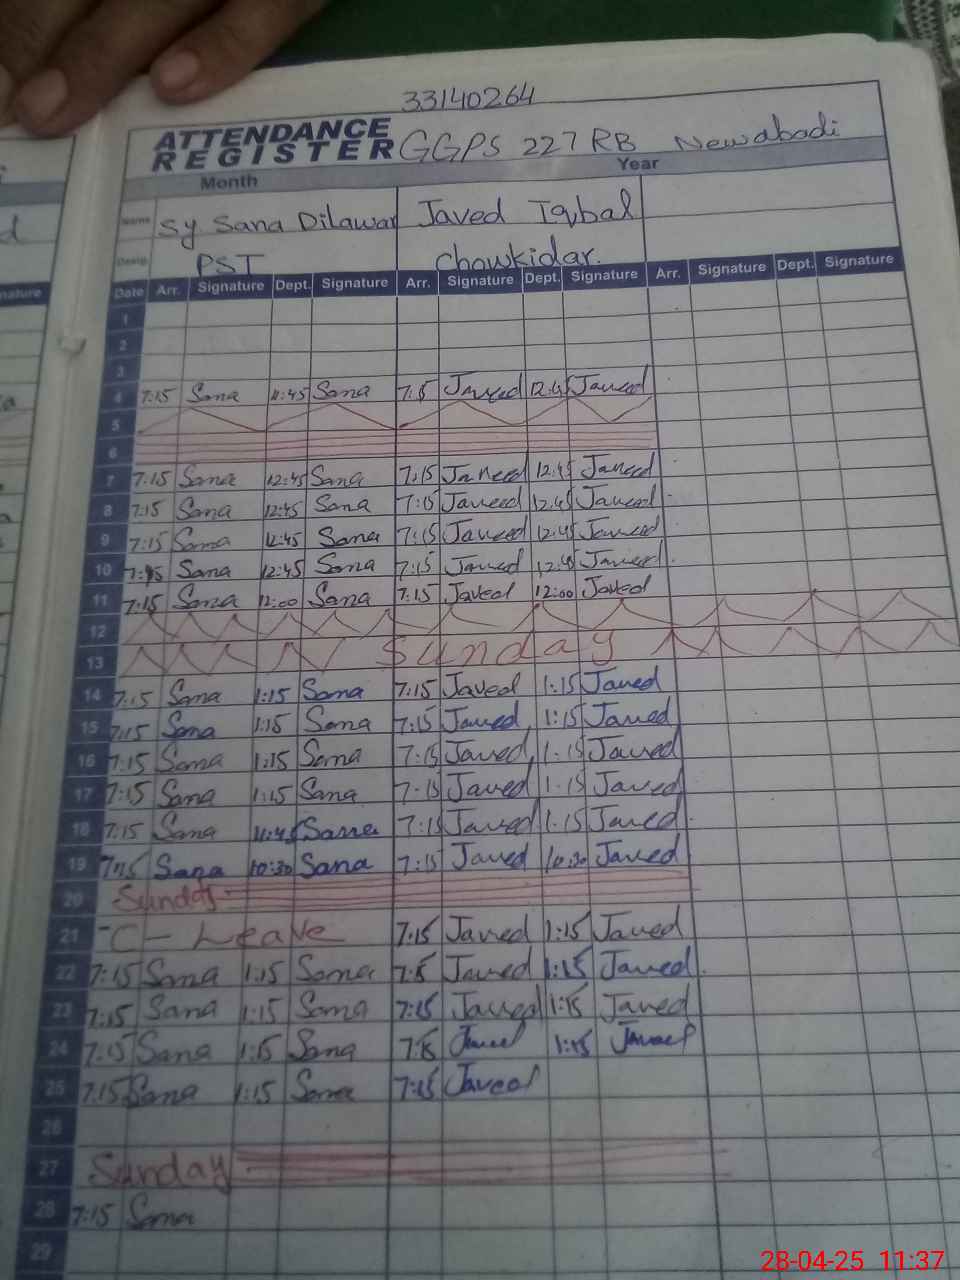 33140264
ATTENDANCE REGISTER GGPS 227 RB Newabadi
Month Year
Name Sy Sana Dilawar Javed Iqbal
Desig. PST Chowkidar.
Date Arr. Signature Dept. Signature Arr. Signature Dept. Signature Arr. Signature Dept. Signature
1
2
3
4 7:15 Sana 11:45 Sana 7:15 Javeed 12:45 Javeed
5
6
7 7:15 Sana 12:45 Sana 7:15 Javeed 12:45 Javeed
8 7:15 Sana 12:45 Sana 7:15 Javeed 12:45 Javeed
9 7:15 Sana 12:45 Sana 7:15 Javeed 12:45 Javeed
10 7:15 Sana 12:45 Sana 7:15 Javeed 12:45 Javeed
11 7:15 Sana 12:00 Sana 7:15 Javed 12:00 Javed
12
13 Sunday
14 7:15 Sana 1:15 Sana 7:15 Javed 1:15 Javed
15 7:15 Sana 1:15 Sana 7:15 Javed 1:15 Javed
16 7:15 Sana 1:15 Sana 7:15 Javed 1:15 Javed
17 7:15 Sana 1:15 Sana 7:15 Javed 1:15 Javed
18 7:15 Sana 11:45 Sana 7:15 Javed 1:15 Javed
19 7:15 Sana 10:30 Sana 7:15 Javed 10:30 Javed
20 Sunday
21 C-Leave 7:15 Javed 1:15 Javed
22 7:15 Sana 1:15 Sana 7:15 Javed 1:15 Javed
23 7:15 Sana 1:15 Sana 7:15 Javed 1:15 Javed
24 7:15 Sana 1:15 Sana 7:15 Javed 1:15 Javed
25 7:15 Sana 1:15 Sana 7:15 Javed
26
27 Sunday
28 7:15 Sana
29
28-04-25 11:37